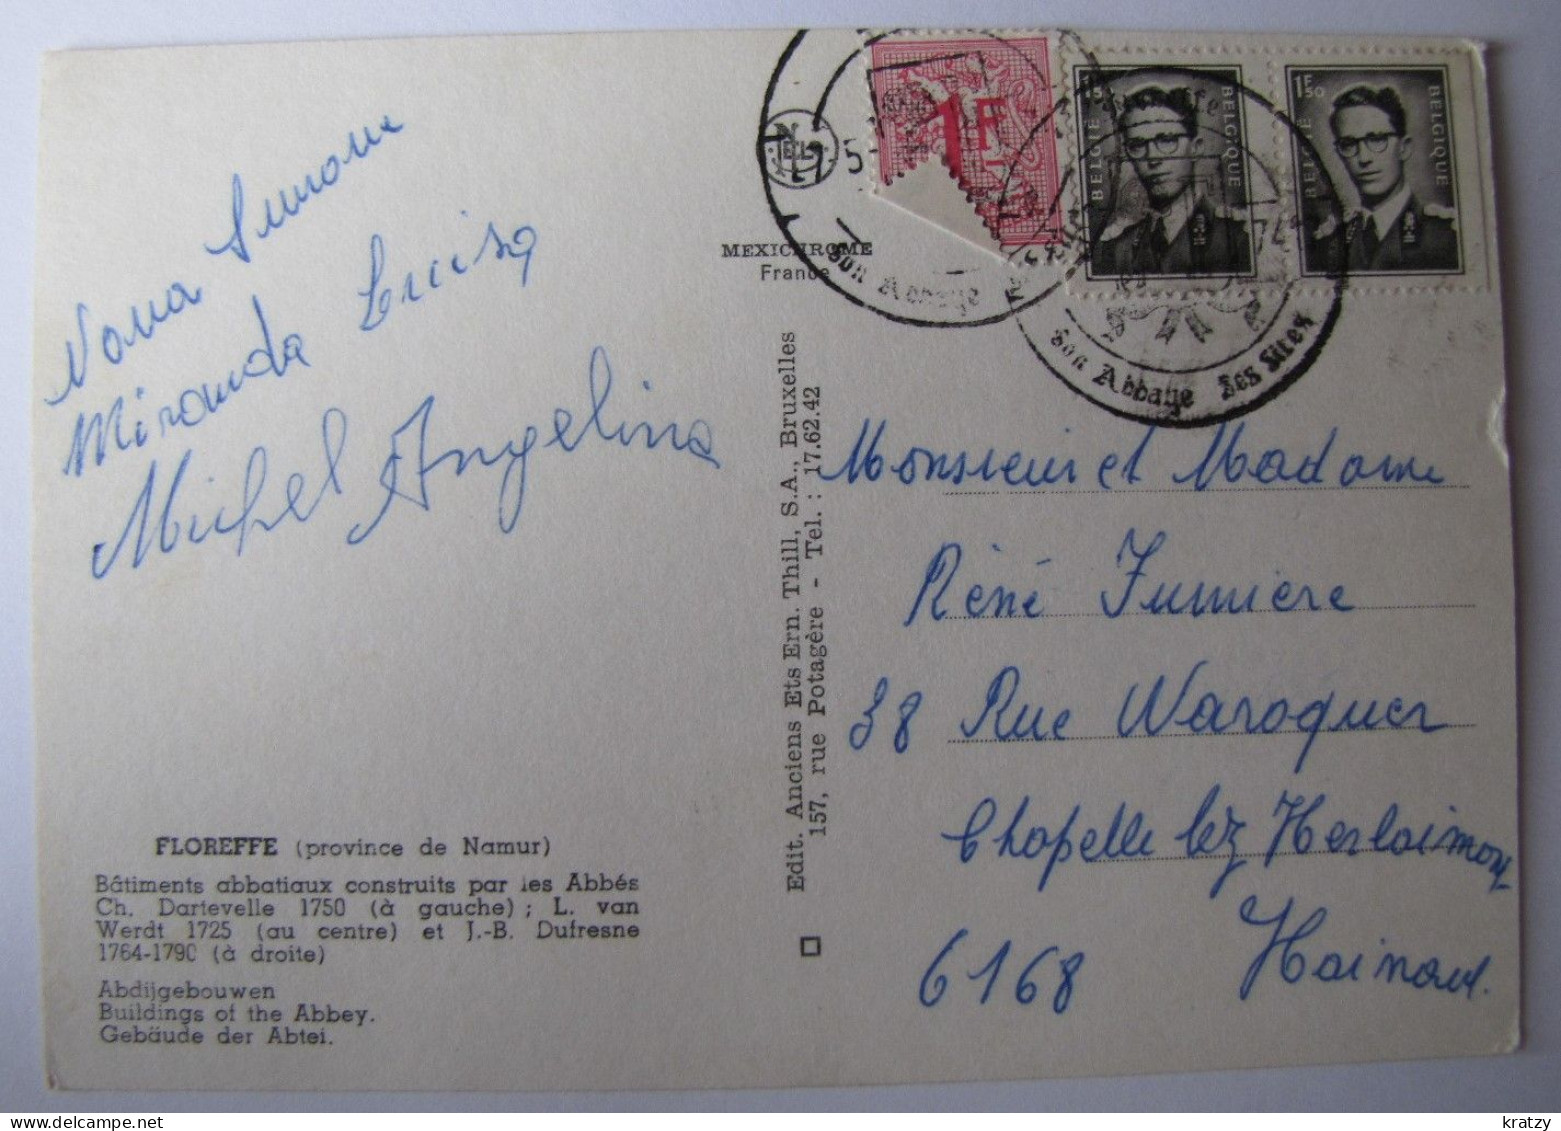 Nona Simone
Miranda Louisa
Michel Angelina
FLOREFFE (province de Namur)
Bâtiments abbatiaux construits par les Abbés
Ch. Dartevelle 1750 (à gauche) ; L. van
Werdt 1725 (au centre) et J.-B. Dufresne
1764-1790 (à droite)
Abdijgebouwen
Buildings of the Abbey.
Gebäude der Abtei.
MEXICHROME
France
Edit. Anciens Ets Ern. Thill, S.A., Bruxelles
157, rue Potagère - Tel. : 17.62.42
NELS
1F
BELGIË BELGIQUE
1F50 BELGIË BELGIQUE
Son Abbaye
Son Abbaye Ses Sites
Monsieur et Madame
René Fumiere
38 Rue Waroquer
Chapelle lez Herlaimont
6168 Hainaut.
kratzy